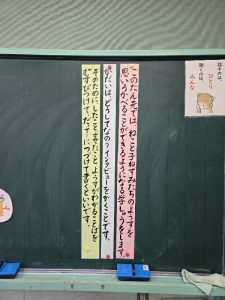 このたん元では、ねことまねずみたちのようすを
思いうかべることができるようになる学しゅうをします。
かだいは、どうしてなの？インタビューをかくことです。
そのために、したこと、言ったこと、ようすがわかることばを
むすびつけて、だって～につづけて書くといいです。
話すのは、
ひとり
聞くのは、
みんな